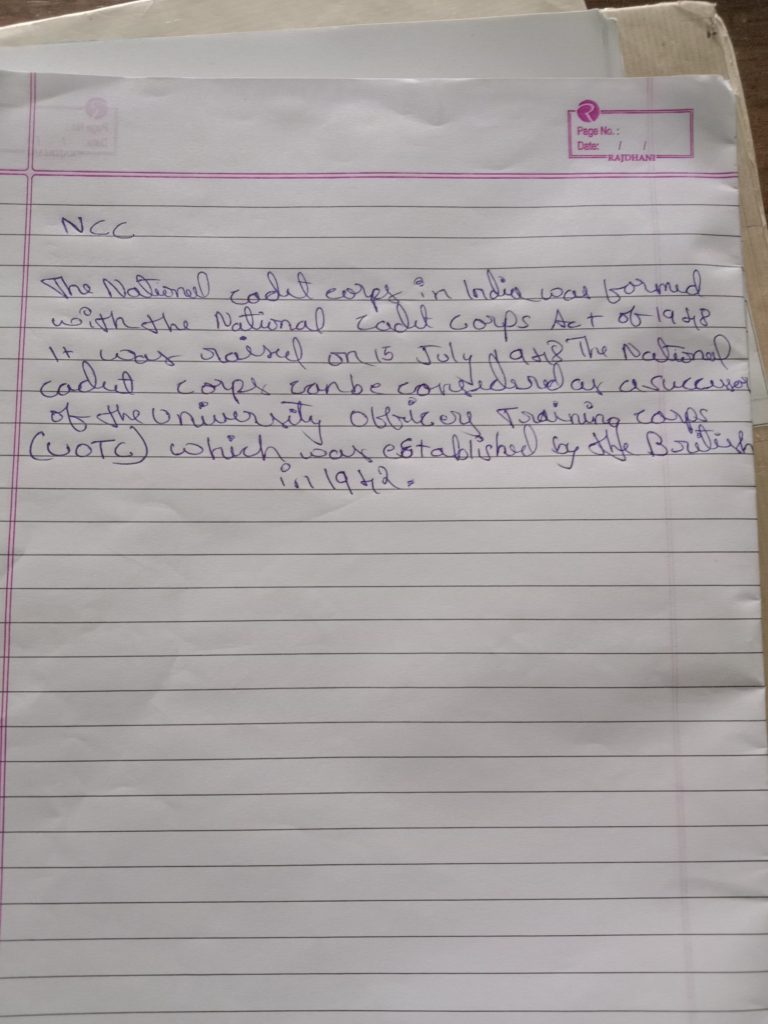 R
Page No.:
Date: / /
RAJDHANI
NCC
The National cadet corps in India was formed
with the National Cadet Corps Act of 1948
It was raised on 15 July 1948 The National
cadet corps can be considered as a successor
of the University Officers Training corps
(UOTC) which was established by the British
in 1942.